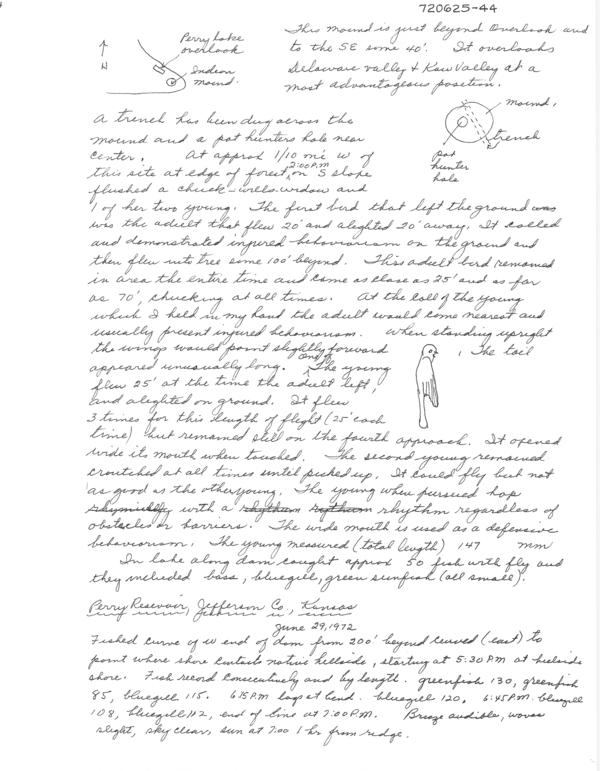 720625-44
Perry Lake
overlook
N
Indian
mound.
This mound is just beyond Overlook and
to the SE some 40'. It overlooks
Delaware Valley & Kaw Valley at a
most advantageous position.
mound.
trench
pot
hunter
hole
A trench has been dug across the
mound and a pot hunters hole near
center. At approx 1/10 mi w of
this site at edge of forest, 2:00 P.M on S slope
flushed a chuck-wills-widow and
1 of her two young. The first bird that left the ground was
was the adult that flew 20' and alighted 20' away. It called
and demonstrated injured behaviorism on the ground and
then flew into tree some 100' beyond. This adult bird remained
in area the entire time and came as close as 25' and as far
as 70', chucking at all times. At the call of the young
which I held in my hand the adult would come nearest and
usually present injured behaviorism. When standing upright
the wings would point slightly forward. The tail
appeared unusually long. One of The young
flew 25' at the time the adult left,
and alighted on ground. It flew
3 times for this length of flight (25' each
time) but remained still on the fourth approach. It opened
wide its mouth when touched. The second young remained
croutched at all times until picked up. It could fly but not
as good as the other young. The young when pursued hop
rhymically with a rhythum rythum rhythm regardless of
obstacles or barriers. The wide mouth is used as a defensive
behaviorism. The young measured (total length) 147 mm
In lake along dam caught approx 50 fish with fly and
they included bass, bluegill, green sunfish (all small).
Perry Reservoir, Jefferson Co., Kansas
June 29, 1972
Fished curve of w end of dam from 200' beyond curved (east) to
point where shore contacts native hillside, starting at 5:30 PM at hillside
shore. Fish record consecutively and by length. greenfish 130, greenfish
85, bluegill 115. 6:15 P.M at bend. bluegill 120, 6:45 P.M. bluegill
108, bluegill 112, end of line at 7:00 P.M. Breeze audible, waves
slight, sky clear, sun at 7:00 1 hr from ridge.